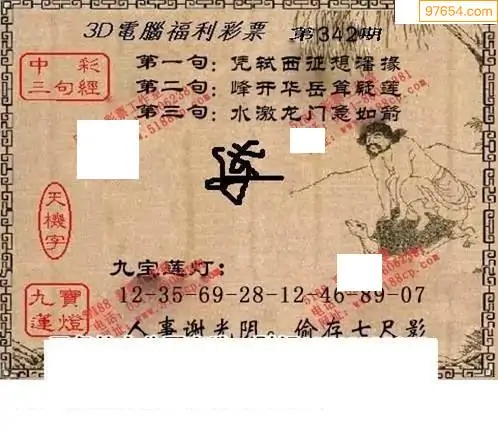 97654.com
3D電腦福利彩票 第342期
中彩
三句經
第一句：凭轼西征想潘掾
第二句：峰开华岳耸疑莲
第三句：水激龙门急如箭
天機字
九宝莲灯：
九寶
蓮燈
12-35-69-28-12-46-89-07
人事谢光阴。偷存七尺影